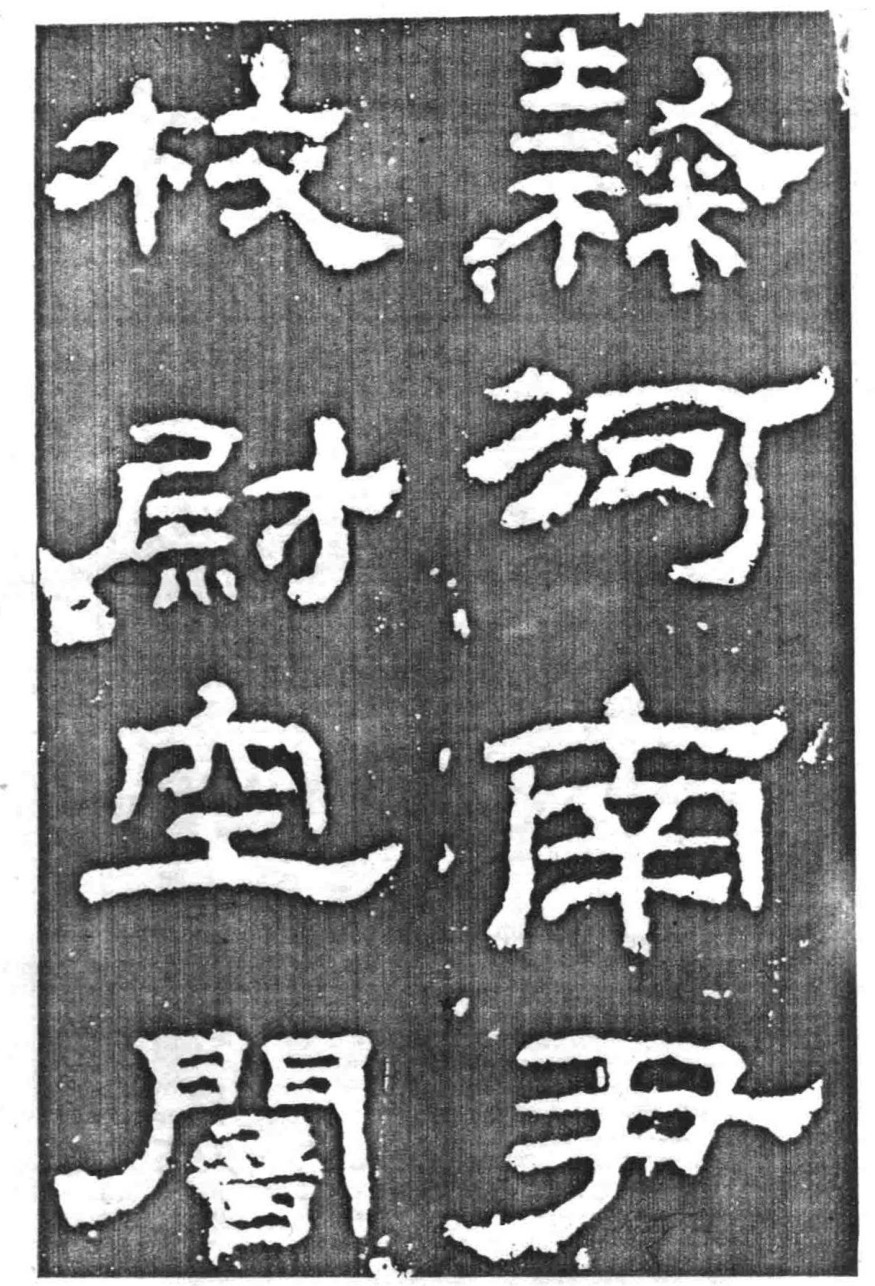 隸河南尹
校尉空闇